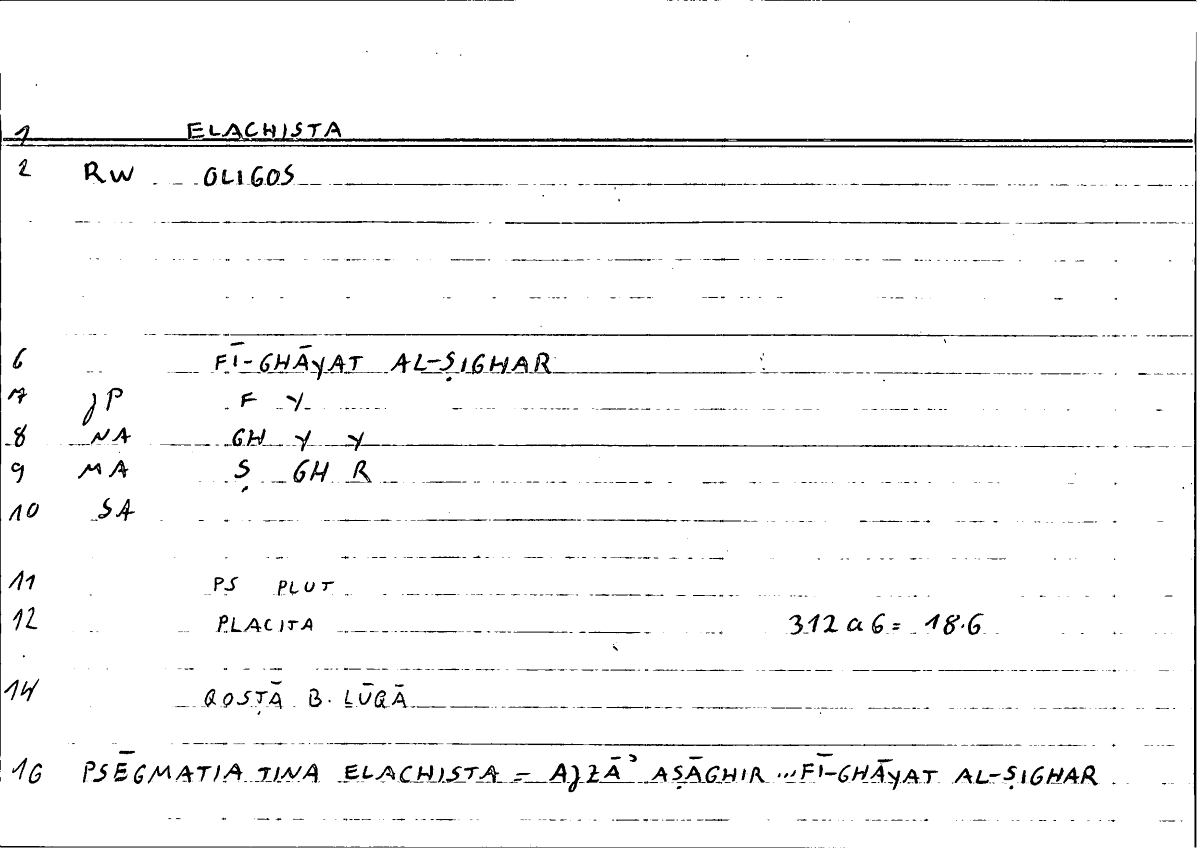 1 ELACHISTA
2 RW OLIGOS
6 FĪ-GHĀYAT AL-ṢIGHAR
7 JP F Y
8 NA GH Y Y
9 MA Ṣ GH R
10 SA
11 PS PLUT
12 PLACITA 312 a 6 = 18.6
14 QOSṬĀ B. LŪQĀ
16 PSĒGMATIA TINA ELACHISTA = AJZĀʾ AṢĀGHIR ...FĪ-GHĀYAT AL-ṢIGHAR